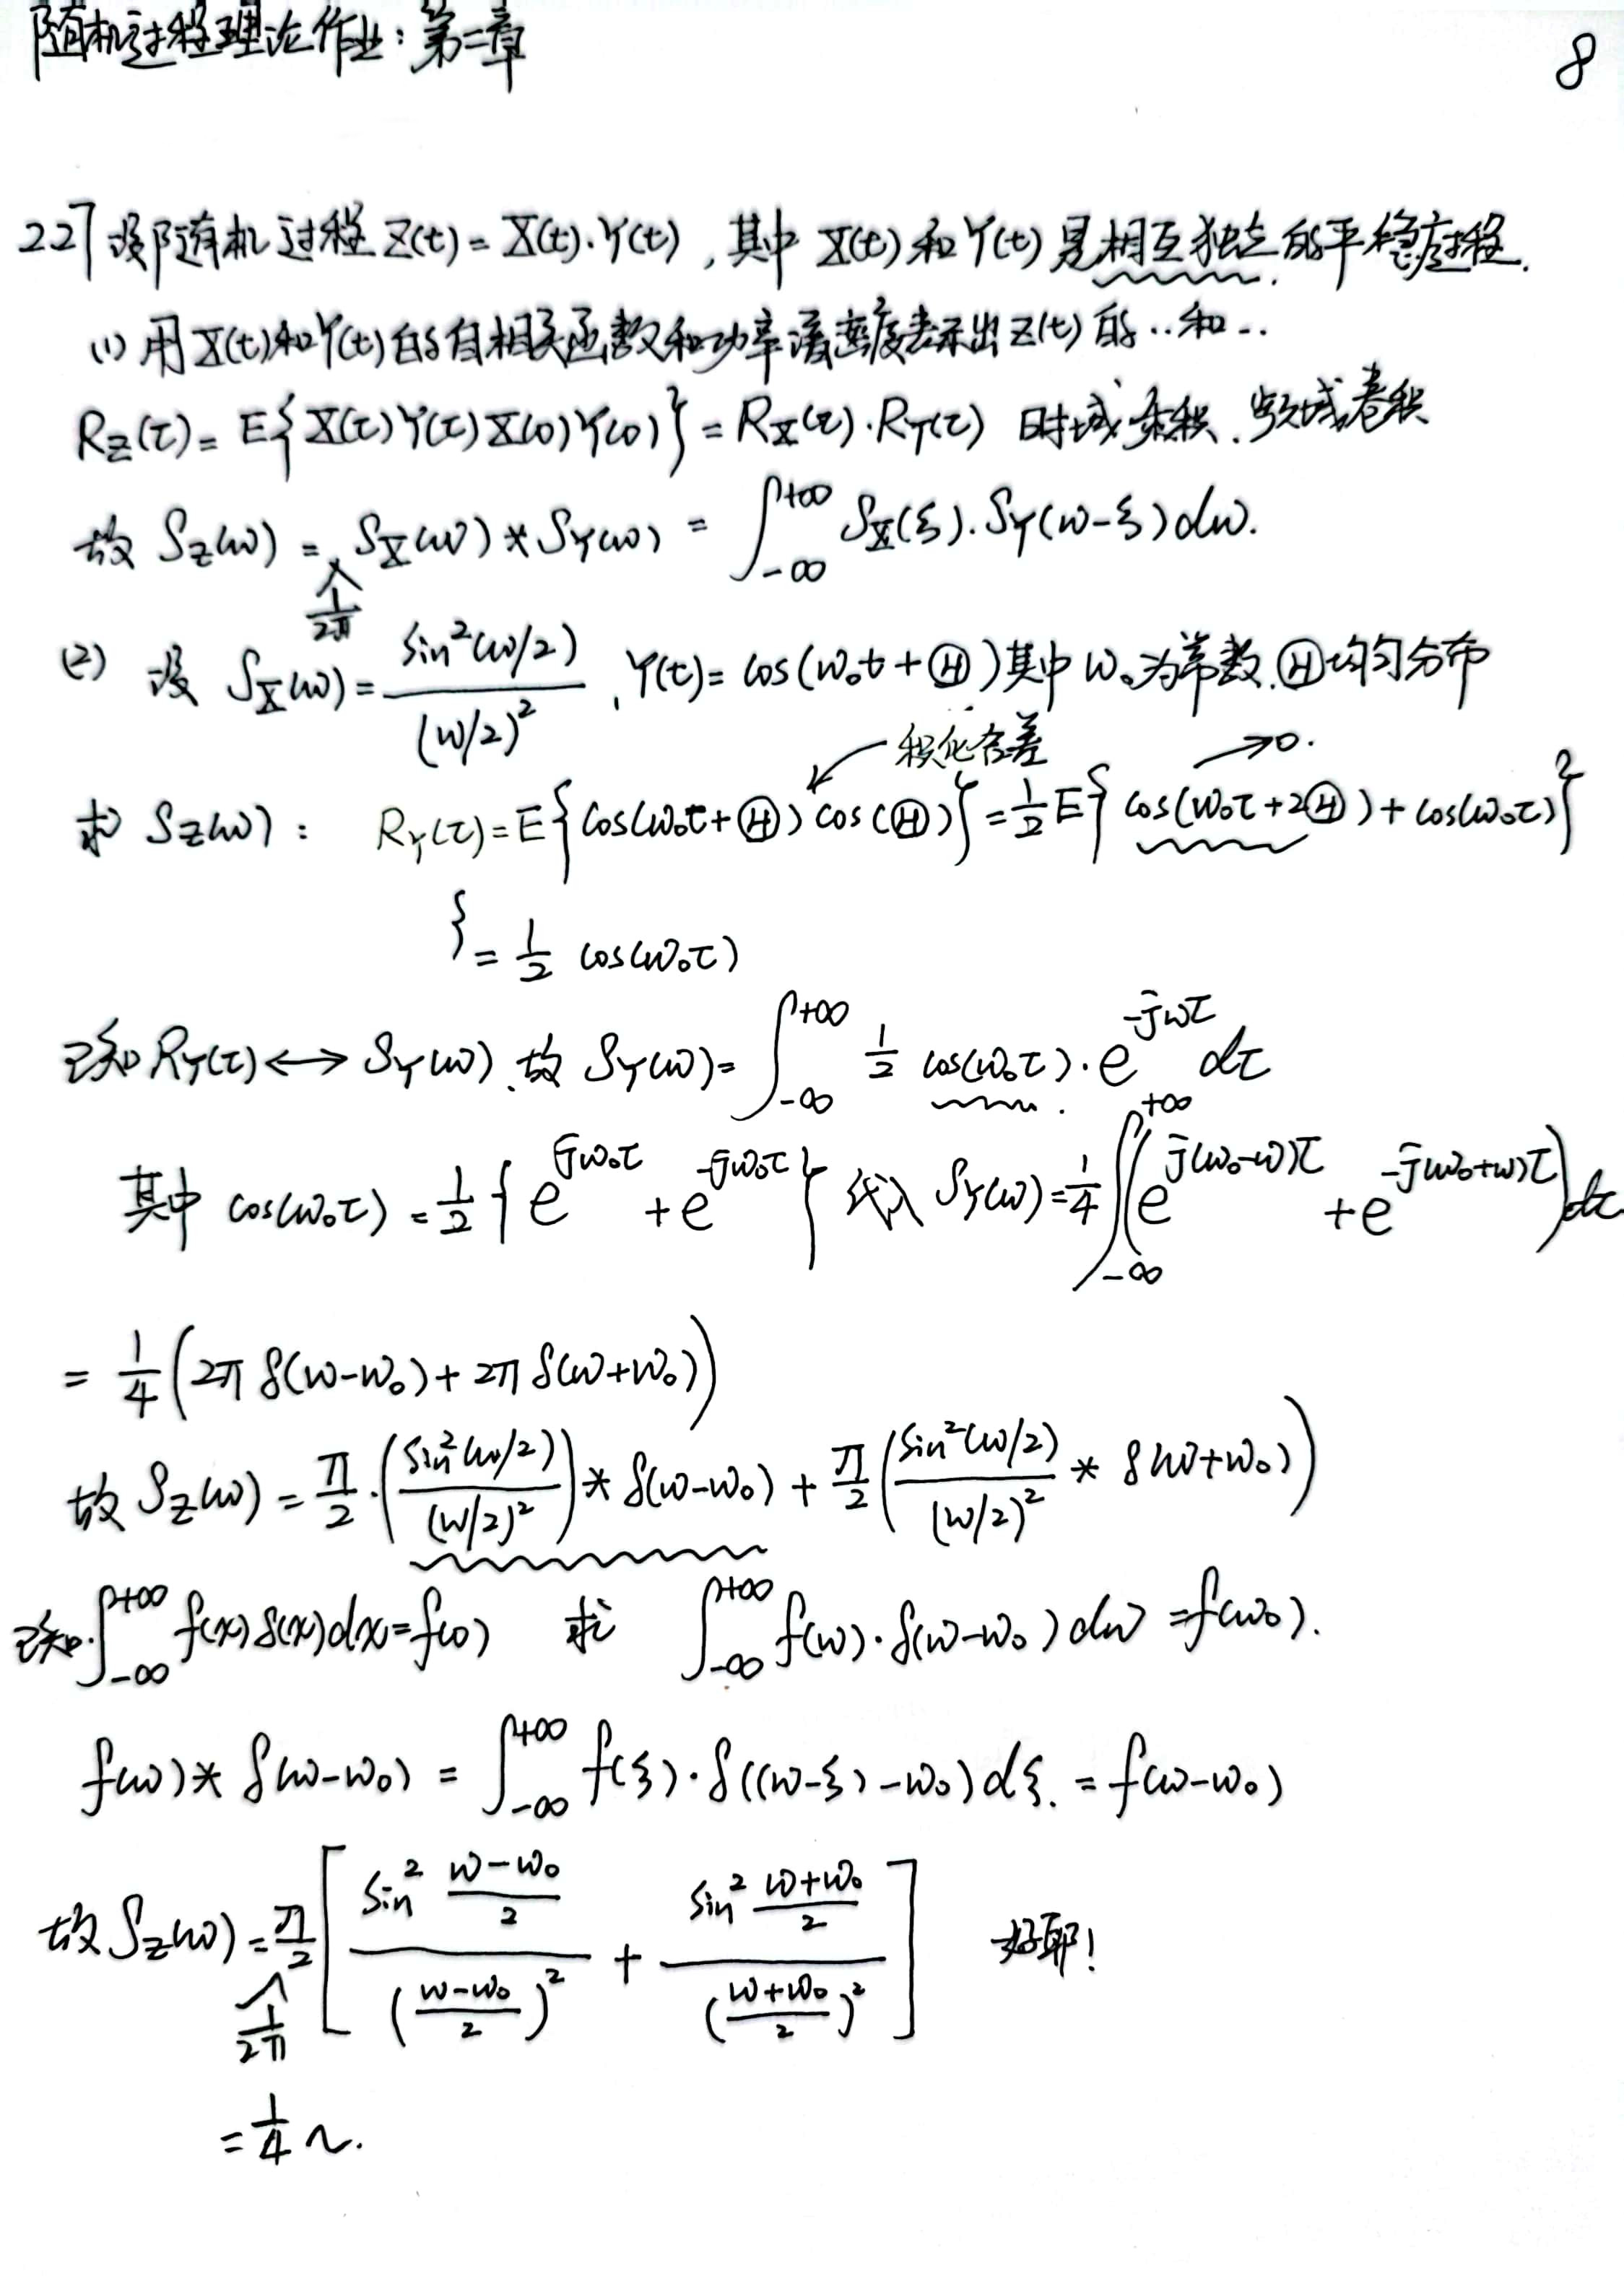 随机过程理论作业：第二章
8
2.27 设随机过程 Z(t) = X(t)·Y(t)，其中 X(t) 和 Y(t) 是相互独立的平稳过程.
(1) 用 X(t) 和 Y(t) 的自相关函数和功率谱密度表示出 Z(t) 的‥和‥
R_Z(τ) = E{X(τ)Y(τ)X(0)Y(0)} = R_X(τ)·R_Y(τ) 时域乘积、频域卷积
故 S_Z(ω) = S_X(ω) * S_Y(ω) = ∫_{-∞}^{+∞} S_X(ξ)·S_Y(ω-ξ)dω.
1/2π
(2) 设 S_X(ω) = sin²(ω/2) / (ω/2)² , Y(t) = cos(ω₀t + Ⓗ) 其中 ω₀为常数, Ⓗ均匀分布
积化和差 →0.
求 S_Z(ω)： R_Y(τ) = E{cos(ω₀τ+Ⓗ) cos(Ⓗ)} = 1/2 E{cos(ω₀τ+2Ⓗ) + cos(ω₀τ)}
} = 1/2 cos(ω₀τ)
已知 R_Y(τ) ↔ S_Y(ω). 故 S_Y(ω) = ∫_{-∞}^{+∞} 1/2 cos(ω₀τ)·e^{-jωτ} dτ
其中 cos(ω₀τ) = 1/2 {e^{jω₀τ} + e^{-jω₀τ}} 代入 S_Y(ω) = 1/4 ∫_{-∞}^{+∞} (e^{j(ω₀-ω)τ} + e^{-j(ω₀+ω)τ}) dτ
= 1/4 (2π δ(ω-ω₀) + 2π δ(ω+ω₀))
故 S_Z(ω) = π/2 · (sin²(ω/2) / (ω/2)²) * δ(ω-ω₀) + π/2 (sin²(ω/2) / (ω/2)² * δ(ω+ω₀))
已知. ∫_{-∞}^{+∞} f(x)δ(x)dx = f(0) 求 ∫_{-∞}^{+∞} f(ω)·δ(ω-ω₀)dω = f(ω₀).
f(ω) * δ(ω-ω₀) = ∫_{-∞}^{+∞} f(ξ)·δ((ω-ξ)-ω₀)dξ. = f(ω-ω₀)
故 S_Z(ω) = π/2 [ sin² (ω-ω₀)/2 / ((ω-ω₀)/2)² + sin² (ω+ω₀)/2 / ((ω+ω₀)/2)² ] 好耶！
1/2π
= 1/4 ~.